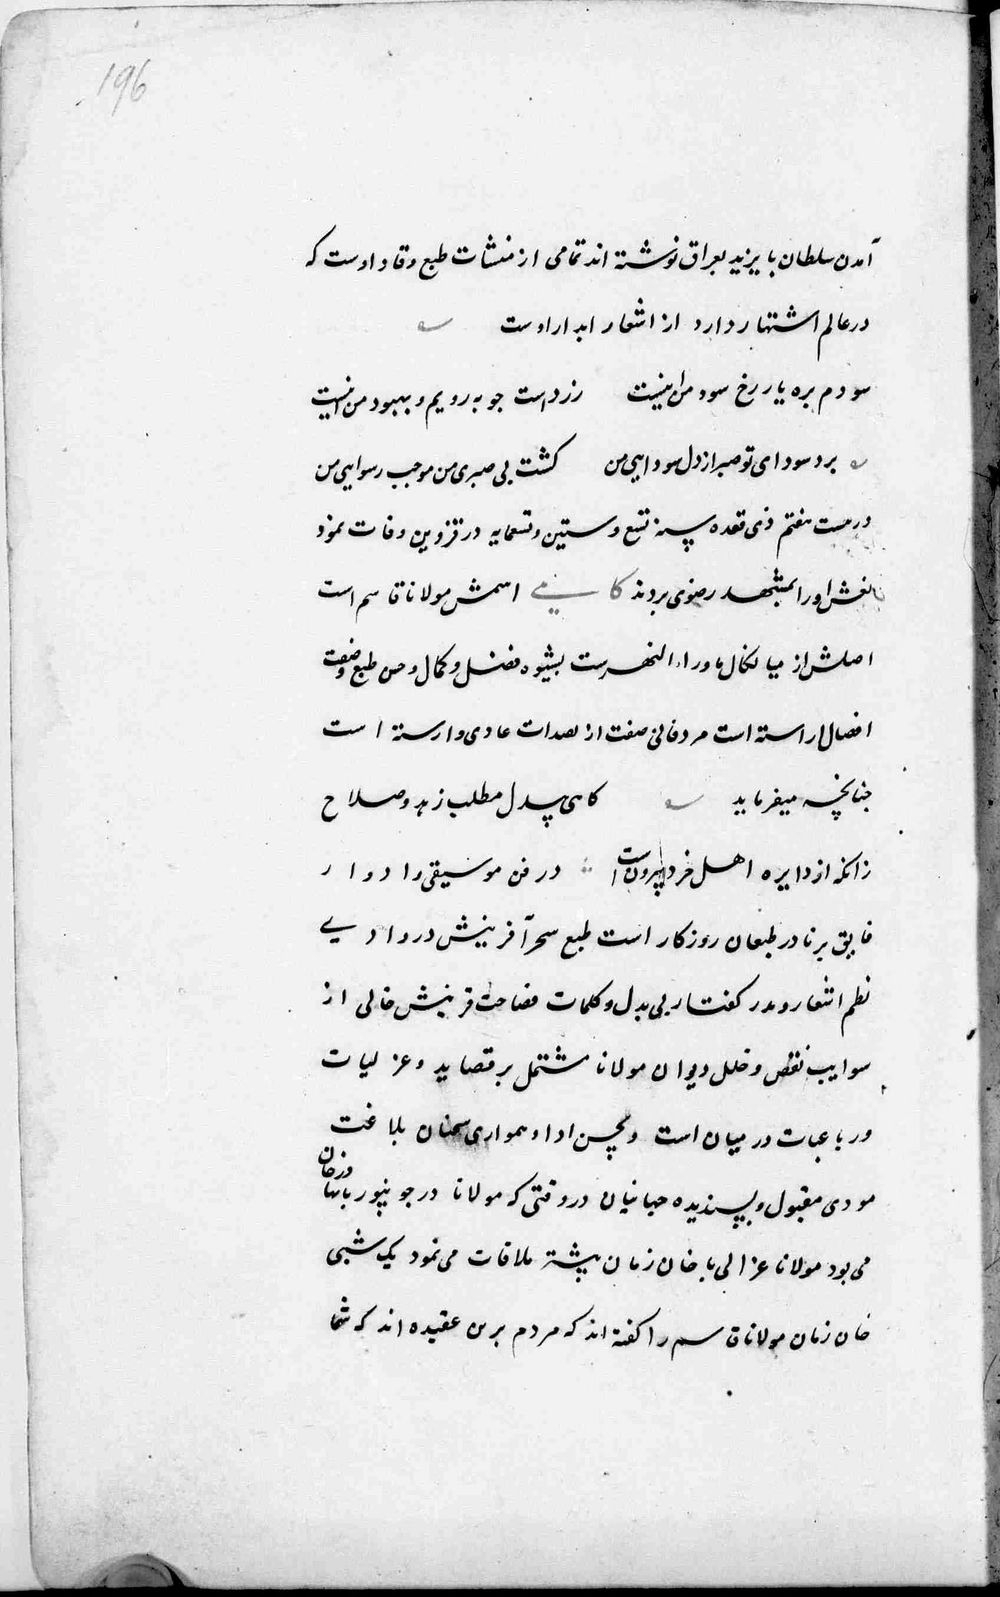 196
آمدن سلطان بایزید بعراق نوشته اند تمامی از منشات طبع وقاد اوست که
در عالم اشتهار دارد از اشعار ابدار اوست
سودم بره یار رخ سود من اینست رزد است جو به رویم و بهبود من اینست
برد سودای تو صبر از دل سودایی من کشت بی صبری من موجب رسوایی من
در بیست هفتم ذی قعده سنه تسع و ستین و تسعمایه در قزوین وفات نمود
نعش او را بمشهد رضوی بردند کاهی اسمش مولانا قاسم است
اصلش از میانکال ماوراء النهرست بشیوه فضل و کمال و حسن طبع و صفت
افضال اراسته است مرد فانی صفت از عادی وارسته است
جنانچه میفرماید کاهی بیدل مطلب زهد و صلاح
زانکه از دایره اهل خرد بیرون است در فن موسیقی و ادوار
فایق بر نادر طبعان روزکار است طبع سحر آفرینش در وادیی
نظم اشعار و در کفتار بی بدل و کلمات فصاحت قرینش خالی از
سوایب نقض و خلل دیوان مولانا مشتمل بر قصاید و غزلیات
و رباعیات در میان است و بحسن ادا و همواری سخنان بلاغت
مودی مقبول و پسندیده جهانیان در وقتی که مولانا در جونپور بابهادرخان
می بود مولانا غزالی با خان زمان بیشتر ملاقات می نمود یک شبی
خان زمان مولانا قاسم را کفته اند که مردم برین عقیده اند که شما